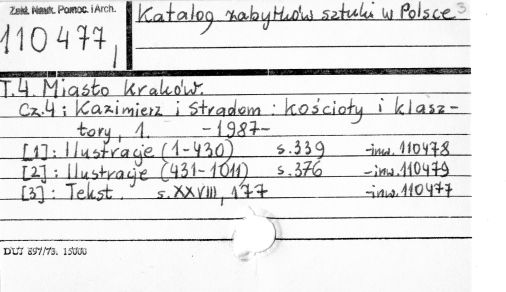 Zakł. Nauk. Pomoc. i Arch.
110477,
Katalog zabytków sztuki w Polsce 3
T.4. Miasto Kraków.
Cz.4: Kazimierz i Stradom: Kościoły i klasz-
tory, 1. -1987-
[1]: Ilustracje (1-430) s.339 -inw.110478
[2]: Ilustracje (431-1011) s.376 -inw.110479
[3]: Tekst. s.XXVIII, 177 -inw.110477
DUJ 897/78. 15000